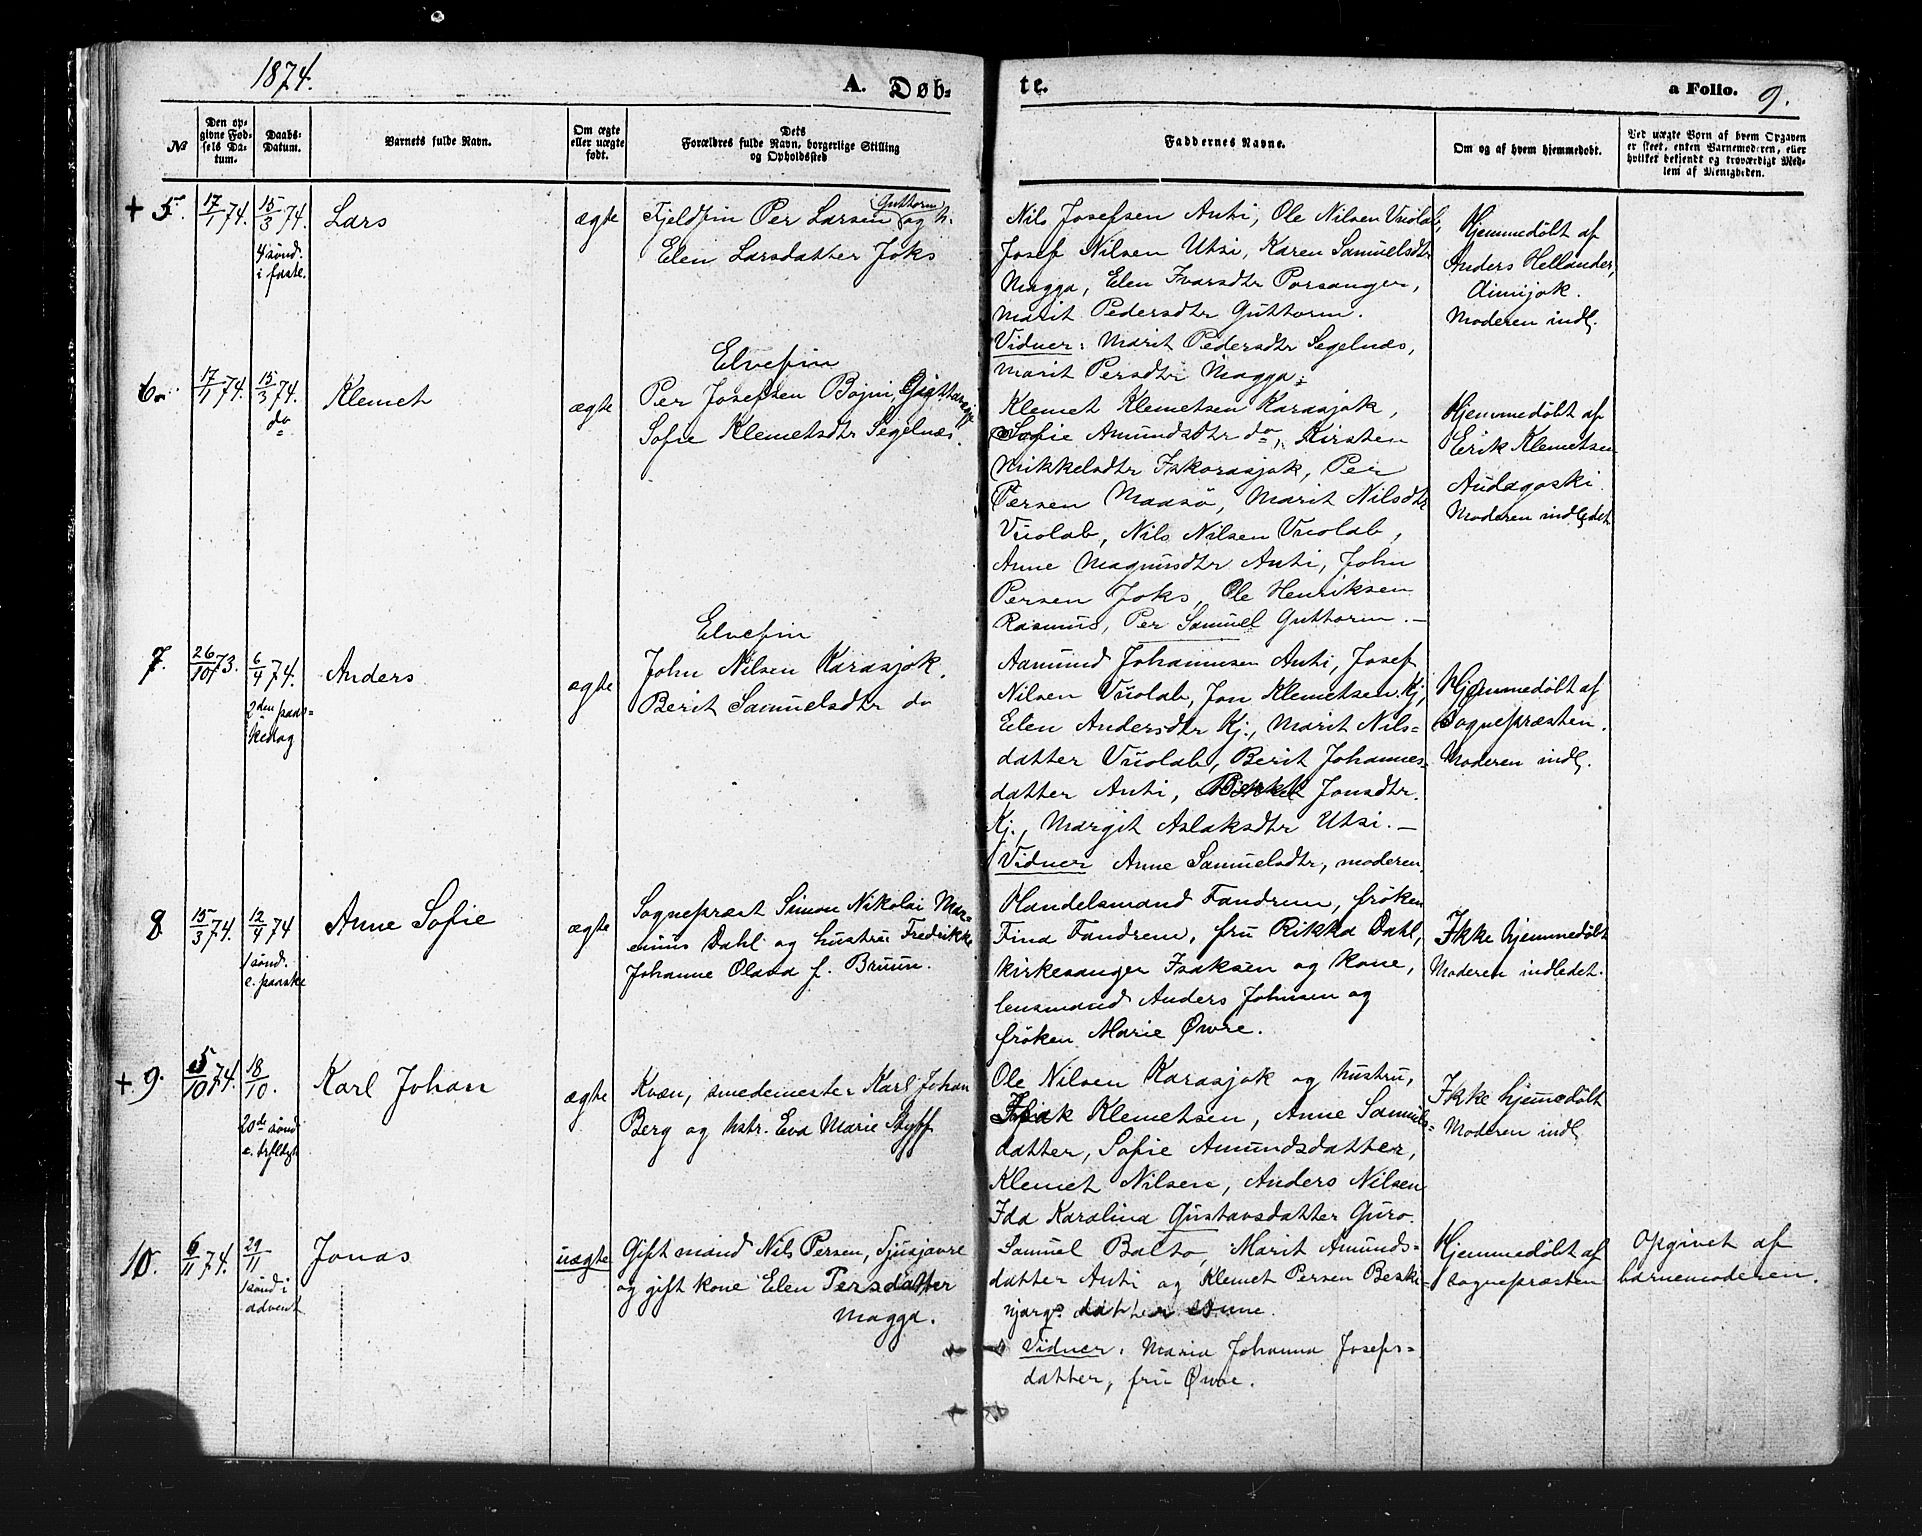 1874.
A. Døb=
te.
a Folio. 9.
№
Den op-
givne Fød-
sels Da-
tum.
Daabs-
Datum.
Barnets fulde Navn.
Om ægte
eller uægte
født.
Dets
Forældres fulde Navn, borgerlige Stilling
og Opholdssted
Faddernes Navne.
Om og af hvem hjemmedøbt.
Ved uægte Børn af hvem Opgaven
er skeet, enten Barnemoderen, eller
hvilket bekjendt og troværdigt Med-
lem af Menigheden.
+ 5. 17/1 74. 15/3 74.
4 sønd.
i faste.
Lars
ægte
Fjeldfin Per Larsen Guttorm og h.
Elen Larsdatter Joks
Nils Josefsen Anti, Ole Nilsen Vuolab,
Josef Nilsen Utsi, Karen Samuelsdtr
Magga, Elen Ivarsdtr Porsanger,
Marit Pedersdtr Guttorm.
Vidner: Marit Pedersdtr Segelnæs,
Marit Persdtr Magga.
Hjemmedøbt af
Anders Hellander,
Moderen indl.
6. 17/1 74. 15/3 74.
do
Klemet
ægte
Elvefin
Per Josefsen Bojni,
Sofie Klemetsdtr Segelnæs.
Klemet Klemetsen Karasjok,
Sofie Amundsdtr do, Kirsten
Mikkelsdtr Iskorasjok, Per
Persen Maasø, Marit Nilsdtr
Vuolab, Nils Nilsen Vuolab,
Anne Magnusdtr Anti, John
Persen Joks, Ole Henriksen
Rasmus, Per Samuel Guttorm. —
Hjemmedøbt af
Erik Klemetsen
Audagoski
Moderen indledet
7. 26/10 73. 6/4 74.
2den paas-
kedag
Anders
ægte
Elvefin
John Nilsen Karasjok.
Berit Samuelsdtr do
Aamund Johannesen Anti, Josef
Nilsen Vuolab, Jon Klemetsen Kj,
Elen Andersdtr Kj., Marit Nils-
datter Vuolab, Berit Johannes-
datter Anti, Jonsdtr.
Kj., Margit Aslaksdtr Utsi. —
Vidner Anne Samuelsdtr, moderen.
Hjemmedøbt af
Sognepræsten.
Moderen indl.
8 15/3 74. 12/4 74
1 sønd.
e. paaske
Anne Sofie
ægte
Sognepræst Simon Nikolai Mar-
enius Dahl og hustru Fredrikke
Johanne Olava f. Bruun.
Handelsmand Fandrem, frøken
Fina Fandrem, fru Rikka Dahl,
kirkesanger Isaksen og kone,
lensmand Anders Johnsen og
frøken Marie Øwre.
Ikke hjemmedøbt
Moderen indledet.
+ 9. 5/10 74. 18/10.
20de sønd
e. trefldgh
Karl Johan
ægte
Kvæn, smedemester Karl Johan
Berg og hstr. Eva Marie Styff
Ole Nilsen Karasjok og hustru,
Isak Klemetsen, Anne Samuels-
datter, Sofie Amundsdatter,
Klemet Nilsen, Anders Nilsen
Ida Karolina Gustavsdatter Guro.
Ikke hjemedøbt
Moderen indl.
10. 6/11 74. 29/11
1 sønd i
advent
Jonas
uægte
Gift mand Nils Persen, Tjusjavre
og gift kone Elen Persdatter
Magga.
Samuel Balto, Marit Amunds-
datter Anti og Klemet Persen Beski-
njarga
Vidner. Maria Johanna Josefs-
datter, fru Øwre.
Hjemmedøbt af
sognepræsten
Opgivet af
barnemoderen.